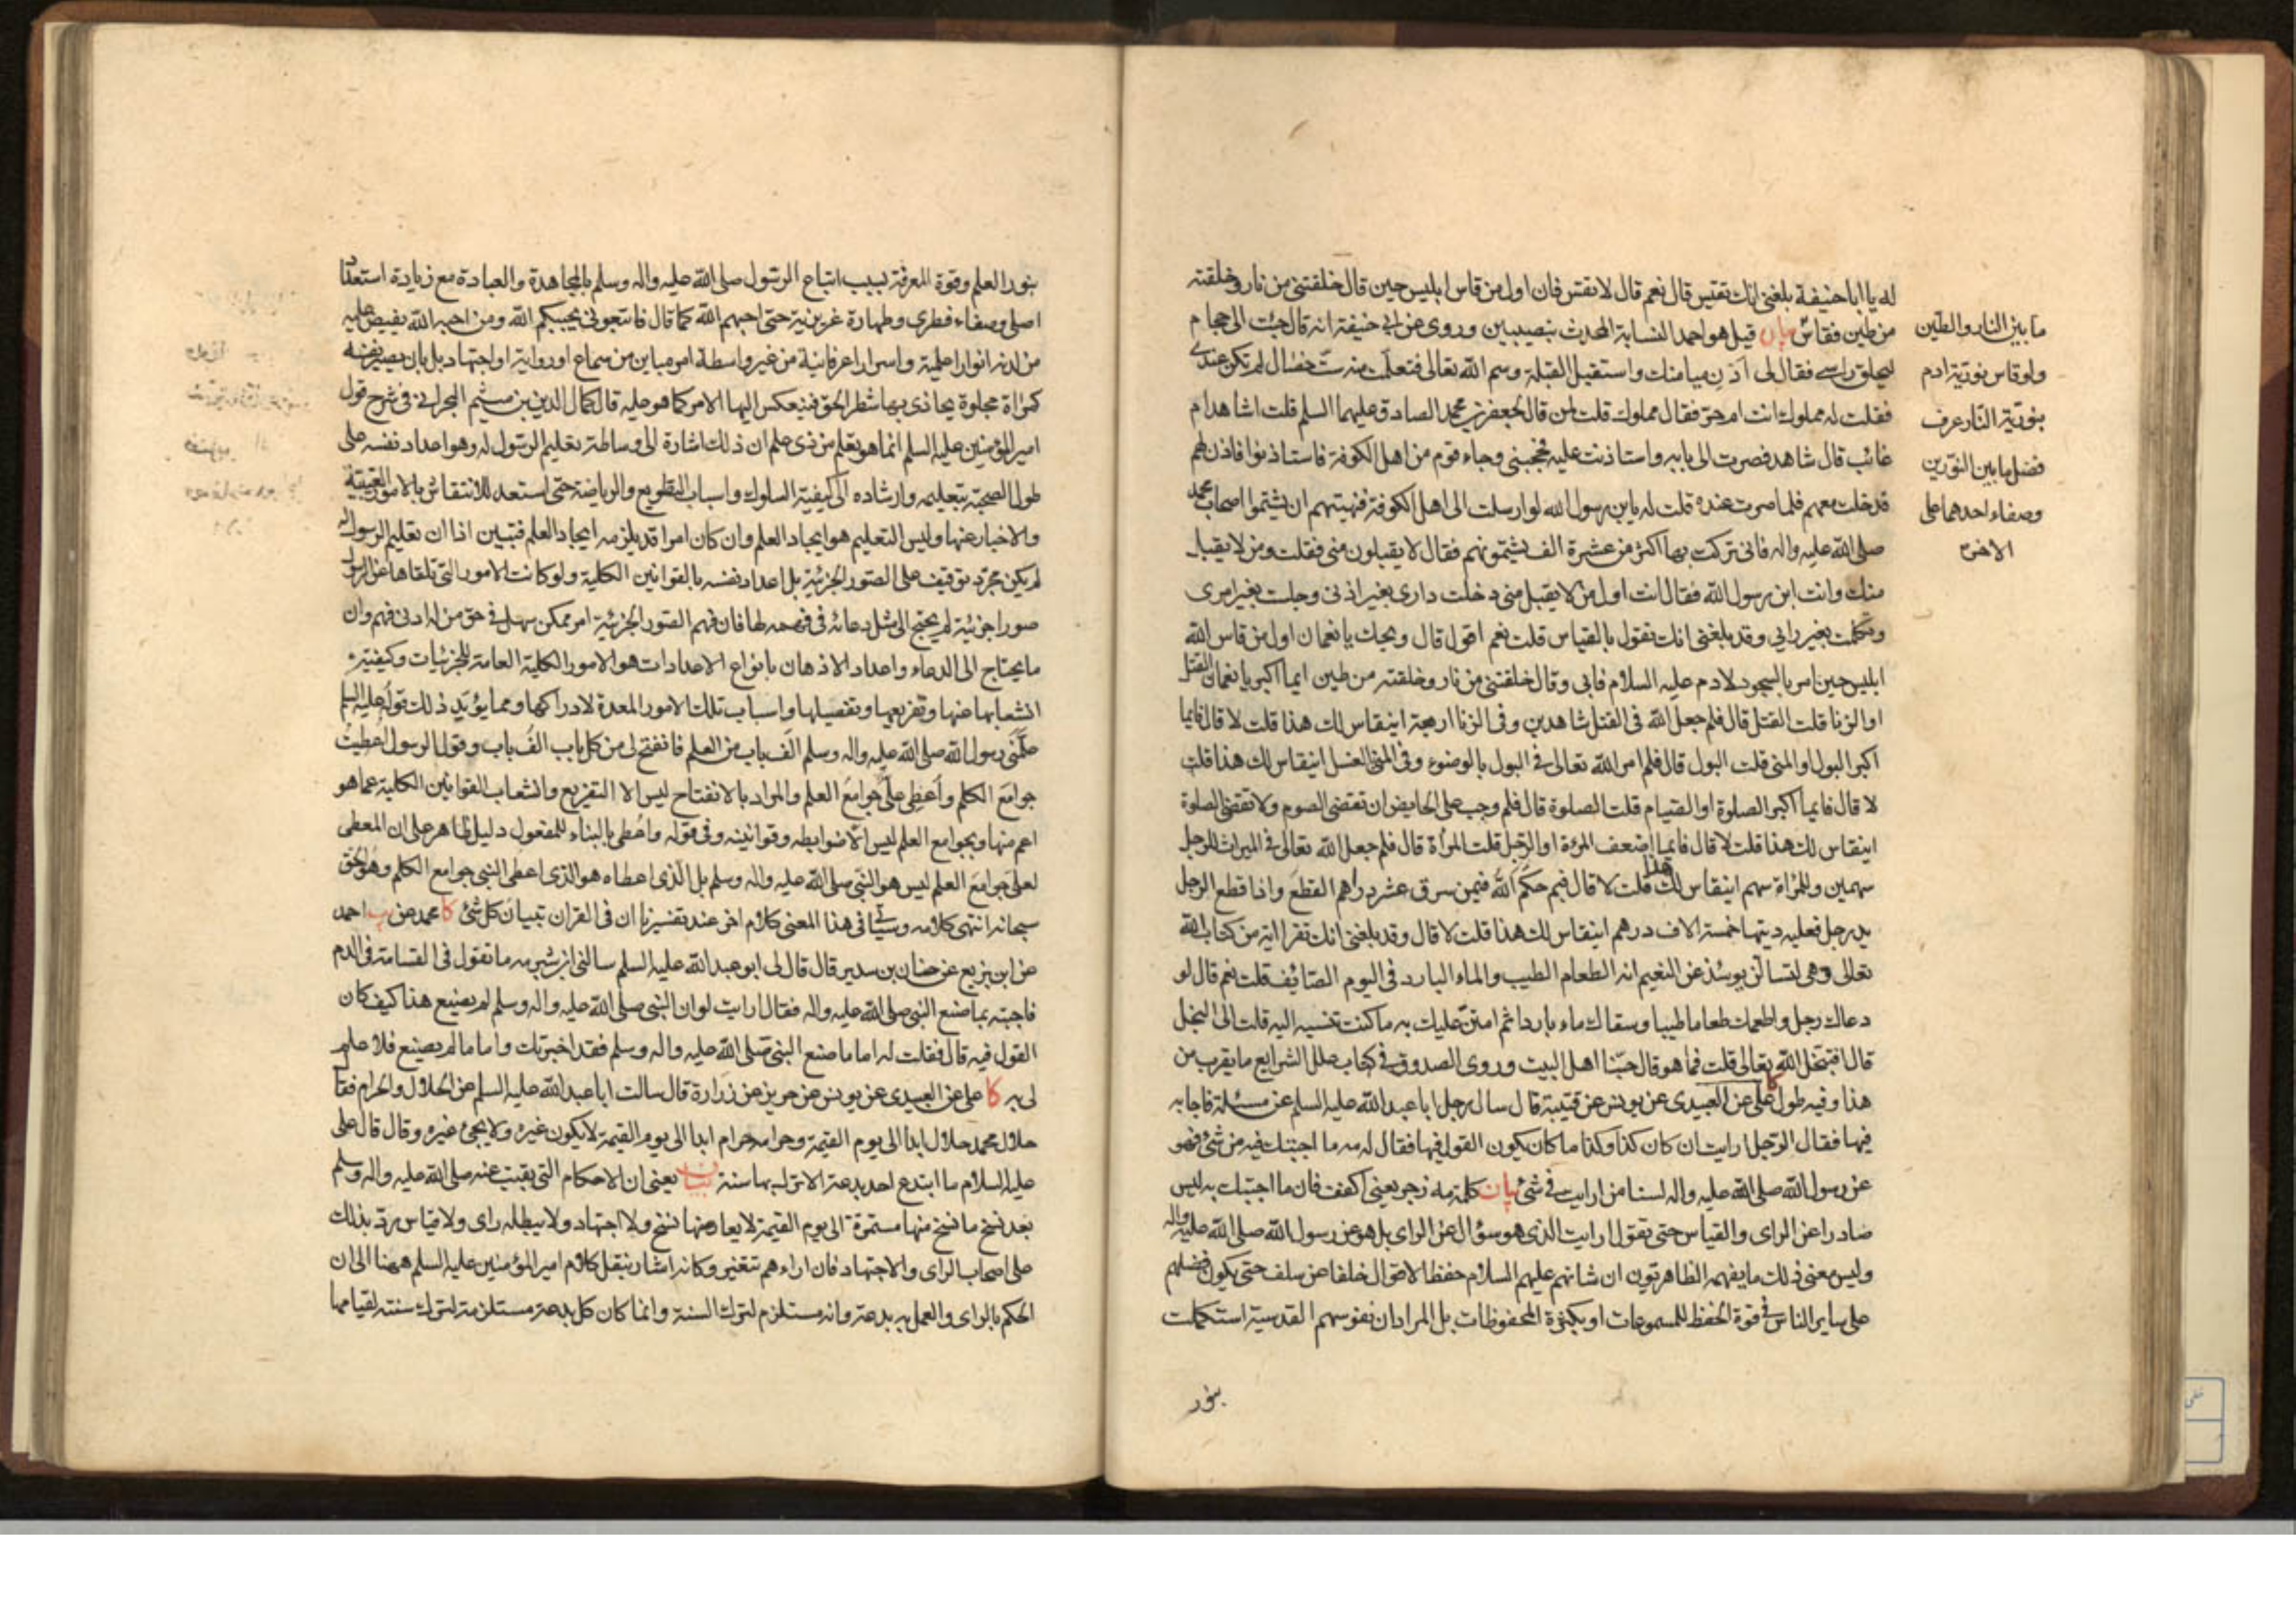 له يا ابا حنيفة بلغنى انك تقيس قال نعم قال لا تقس فان اول من قاس ابليس حين قال خلقتنى من نار وخلقته
من طين فقاس بيان قيل هو احمد النسابة المحدث بنصيبين وروى عن ابى حنيفة انه قال جئت الى حجام
ليحلق راسى فقال لى ادن ميامنك واستقبل القبلة وسم الله تعالى فتعلمت منه ست خصال لم تكن عندى
فقلت له مملوك انت ام حر فقال مملوك قلت لمن قال لجعفر بن محمد الصادق عليهما السلم قلت اشاهد ام
غائب قال شاهد فصرت الى بابه واستاذنت عليه فحجبنى وجاء قوم من اهل الكوفة فاستاذنوا فاذن لهم
فدخلت معهم فلما صرت عنده قلت له يابن رسول الله لو ارسلت الى اهل الكوفة فنهيتهم ان يشتموا اصحاب محمد
صلى الله عليه واله فانى تركت بها اكثر من عشرة الف يشتمونهم فقال لا يقبلون منى فقلت ومن لا يقبل
منك وانت ابن رسول الله فقال انت اول من لا يقبل منى دخلت دارى بغير اذنى وجلست بغير امرى
وتكلمت بغير رايى وقد بلغنى انك تقول بالقياس قلت نعم اقول قال ويحك يا نعمان اول من قاس الله
ابليس حين امر بالسجود لادم عليه السلام فابى وقال خلقتنى من نار وخلقته من طين ايما اكبر يا نعمان القتل
او الزنا قلت القتل قال فلم جعل الله فى القتل شاهدين وفى الزنا اربعة اينقاس لك هذا قلت لا قال فايما
اكبر البول او المنى قلت البول قال فلم امر الله تعالى فى البول بالوضوء وفى المنى الغسل اينقاس لك هذا قلت
لا قال فايما اكبر الصلوة او الصيام قلت الصلوة قال فلم وجب على الحايض ان تقضى الصوم ولا تقضى الصلوة
اينقاس لك هذا قلت لا قال فايما اضعف المرءة او الرجل قلت المرأة قال فلم جعل الله تعالى فى الميراث للرجل
سهمين وللمراة سهم اينقاس لك هذا قلت لا قال فبم حكم الله فيمن سرق عشر دراهم القطع واذا قطع الرجل
يد رجل فعليه ديتها خمسة الاف درهم اينقاس لك هذا قلت لا قال وقد بلغنى انك تقرا اية من كتاب الله
تعالى وهى لتسألن يومئذ عن النعيم انه الطعام الطيب والماء البارد فى اليوم الصائف قلت نعم قال لو
دعاك رجل واطعمك طعاما طيبا وسقاك ماء باردا ثم امتن عليك به ما كنت تنسبه اليه قلت الى البخل
قال افتبخل الله تعالى قلت فما هو قال حبنا اهل البيت وروى الصدوق فى كتاب علل الشرايع ما يقرب من
هذا وفيه طول كا على عن العبيدى عن يونس عن قتيبة قال سال رجل ابا عبد الله عليه السلم عن مسئلة فاجابه
فيها فقال الرجل ارايت ان كان كذا وكذا ما كان يكون القول فيها فقال له مه ما اجبتك فيه من شئ فهو
عن رسول الله صلى الله عليه واله لسنا من ارايت فى شئ بيان كلمة مه زجر يعنى اكفف فان ما اجبتك به ليس
صادرا عن الراى والقياس حتى تقول ارايت الذى هو سؤال عن الراى بل هو عن رسول الله صلى الله عليه واله
وليس معنى ذلك ما يفهمه الظاهريون ان شانهم عليهم السلام حفظ الاقوال خلفا عن سلف حتى يكون فضلهم
على ساير الناس فى قوة الحفظ للمسموعات او بكثرة المحفوظات بل المراد ان نفوسهم القدسية استكملت
بنور
ما بين النار والطين
ولو قاس نورية ادم
بنورية النار عرف
فضل ما بين النورين
وصفاء احدهما على
الاخر
بنور العلم وقوة المعرفة بسبب اتباع الرسول صلى الله عليه واله وسلم بالمجاهدة والعبادة مع زيادة استعداد
اصلى وصفاء فطرى وطهارة غريزية حتى احبهم الله كما قال فاتبعونى يحببكم الله ومن احبه الله يفيض عليه
من لدنه انوارا علمية واسرارا عرفانية من غير واسطة امر مباين من سماع او رواية او اجتهاد بل بان يصير نفسه
كمراة مجلوة يحاذى بها شطر الحق فينعكس اليها الامر كما هو عليه قال كمال الدين بن ميثم البحرانى فى شرح قول
امير المؤمنين عليه السلم انما هو تعلم من ذى علم ان ذلك اشارة الى وساطة تعليم الرسول له وهو اعداد نفسه على
طول الصحبة بتعليمه وارشاده الى كيفية السلوك واسباب التطويع والرياضة حتى استعد للانتقاش بالامور الغيبية
والاخبار عنها وليس التعليم هو ايجاد العلم وان كان امرا قد يلزمه ايجاد العلم فتبين اذا ان تعليم الرسول له
لم يكن مجرد توقيف على الصور الجزئية بل اعداد نفسه بالقوانين الكلية ولو كانت الامور التى تلقاها عن الرسول
صورا جزئية لم يحتج الى مثل دعائه فى فهمه لها فان فهم الصور الجزئية امر ممكن سهل فى حق من له ادنى فهم وان
ما يحتاج الى الدعاء واعداد الاذهان بانواع الاعدادات هو الامور الكلية العامة للجزئيات وكيفية
انشعابها عنها وتفريعها وتفصيلها واسباب تلك الامور المعدة لادراكها ومما يؤيد ذلك قوله عليه السلم
علمنى رسول الله صلى الله عليه واله وسلم الف باب من العلم فانفتح لى من كل باب الف باب وقول الرسول اعطيت
جوامع الكلم واعطى على جوامع العلم والمراد بالانفتاح ليس الا التفريع وانشعاب القوانين الكلية عما هو
اعم منها وبجوامع العلم ليس الا ضوابطه وقوانينه وفى قوله واعطى بالبناء للمفعول دليل ظاهر على ان المعطى
لعلى جوامع العلم ليس هو النبى صلى الله عليه واله وسلم بل الذى اعطاه هو الذى اعطى النبى جوامع الكلم وهو الحق
سبحانه انتهى كلامه وسياتى فى هذا المعنى كلام اخر عند تفسيرنا ان فى القران تبيان كل شئ كا محمد عن احمد
عن ابن بزيع عن حنان بن سدير قال قال لى ابو عبد الله عليه السلم سالنى ابن شبرمه ما تقول فى القسامة فى الدم
فاجبته بما صنع النبى صلى الله عليه واله فقال ارايت لو ان النبى صلى الله عليه واله وسلم لم يصنع هذا كيف كان
القول فيه قال فقلت له اما ما صنع النبى صلى الله عليه واله وسلم فقد اخبرتك واما ما لم يصنع فلا علم
لى به كا على عن العبيدى عن يونس عن حريز عن زرارة قال سالت ابا عبد الله عليه السلم عن الحلال والحرام فقا
حلال محمد حلال ابدا الى يوم القيمة وحرامه حرام ابدا الى يوم القيمة لا يكون غيره ولا يجئ غيره وقال قال على
عليه السلام ما ابتدع احد بدعة الا ترك بها سنة بيان يعنى ان الاحكام التى بقيت عنه صلى الله عليه واله وسلم
بعد نسخ ما نسخ منها مستمرة الى يوم القيمة لا يعارضها نسخ ولا اجتهاد ولا يبطله راى ولا قياس رد بذلك
على اصحاب الراى والاجتهاد فان اراءهم تتغير وكانه اشار بنقل كلام امير المؤمنين عليه السلم ههنا الى ان
الحكم بالراى والعمل به بدعة وانه مستلزم لترك السنة وانما كان كل بدعة مستلزمة لترك سنة لقيامها